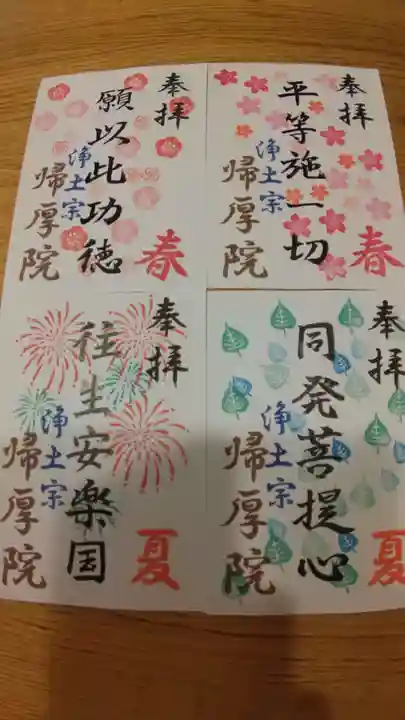 奉拝
願以此功徳
浄土宗
帰厚院
春
奉拝
平等施一切
浄土宗
帰厚院
春
奉拝
往生安楽国
浄土宗
帰厚院
夏
奉拝
同発菩提心
浄土宗
帰厚院
夏